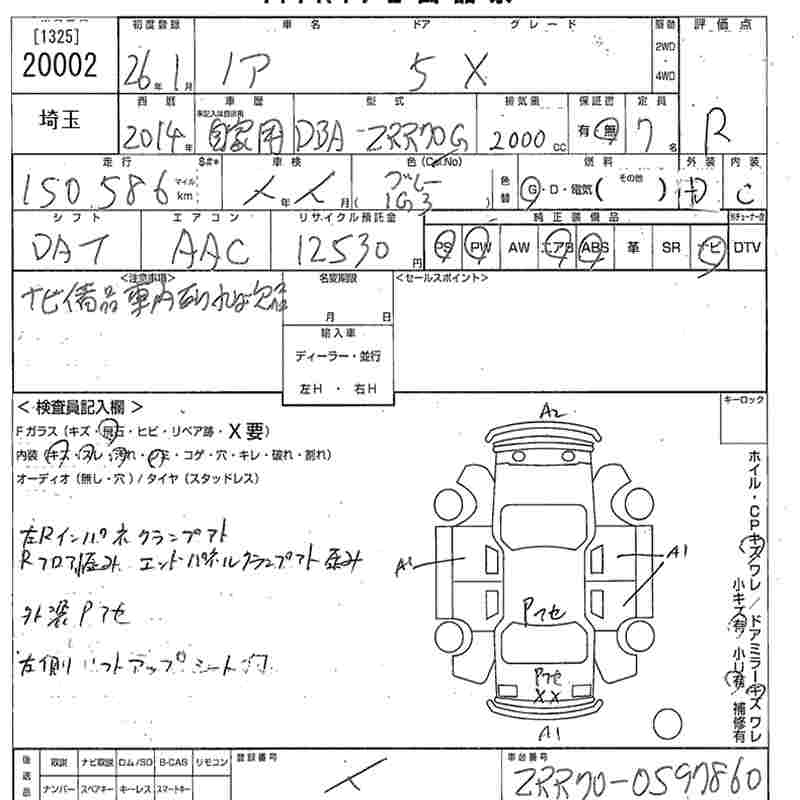 [1325]
20002
初度登録 車名 ドア グレード 駆動 評価点
26年1月 ノア 5 X 2WD・4WD R
埼玉
西暦 車歴 型式 排気量 保証書 定員
2014年 自家用 DBA-ZRR70G 2000cc 有・無 7名
走行 車検 色(Col.No) 燃料 外装 内装
150586 マイル km 年 月 ( ブルー 1G3 ) 色替 G・D・電気( その他 ) C
シフト エアコン リサイクル預託金 純正装備品
DAT AAC 12530円 PS PW AW エアB ABS 革 SR ナビ DTV
<注意事項> 名変期限 <セールスポイント>
ナビ備品車内あれば欠品
月 日
輸入車
ディーラー・並行
左H ・ 右H
<検査員記入欄> キーロック
Fガラス(キズ・飛石・ヒビ・リペア跡・X要)
内装(キズ・スレ・汚れ・シミ・コゲ・穴・キレ・破れ・割れ)
オーディオ(無し・穴)/タイヤ(スタッドレス)
左Rインパネクランプアト
Rフロア歪み エンドパネルクランプアト歪み
外装Pアセ
左側リフトアップシート付
A2
A1
A1
Pアセ
Pアセ
XX
A1
ホイル・CPキズ/ワレ/ドアミラーキズワレ
小キズ有 小U有 補修有
後送品 取説 ナビ取説 ロム/SD B-CAS リモコン 登録番号 車台番号
ナンバー スペアキー キーレス スマートキー ZRR70-0597860